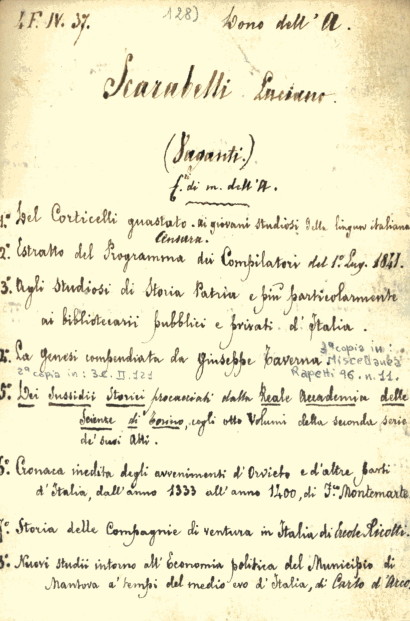 I.F. IV. 37.
128)
Dono dell' A.
Scarabelli Luciano.
(Vaganti.)
f.ⁿⁱ di m. dell'A.
1.° Del Corticelli guastato. ai giovani studiosi della lingua italiana
Censura.
2.° Estratto del Programma dei Compilatori del 1.° Lug. 1841.
3.° Agli Studiosi di Storia Patria e più particolarmente
ai bibliotecarii pubblici e privati d'Italia.
4.° La Genesi compendiata da Giuseppe Taverna
2ª copia in:
Miscellanea
Rapetti 96. n. 11.
2ª copia in: 3.E. II. 121
5.° Dei Sussidii Storici procacciati dalla Reale Accademia delle
Scienze di Torino, cogli otto Volumi della seconda serie
de' suoi Atti.
6.° Cronaca inedita degli avvenimenti d'Orvieto e d'altre parti
d'Italia, dall'anno 1333 all'anno 1400, di F.co Montemarte
7.° Storia delle Compagnie di ventura in Italia di Ercole Ricotti.
8.° Nuovi studii intorno all'Economia politica del Municipio di
Mantova a' tempi del medio evo d'Italia, di Carlo d'Arco.